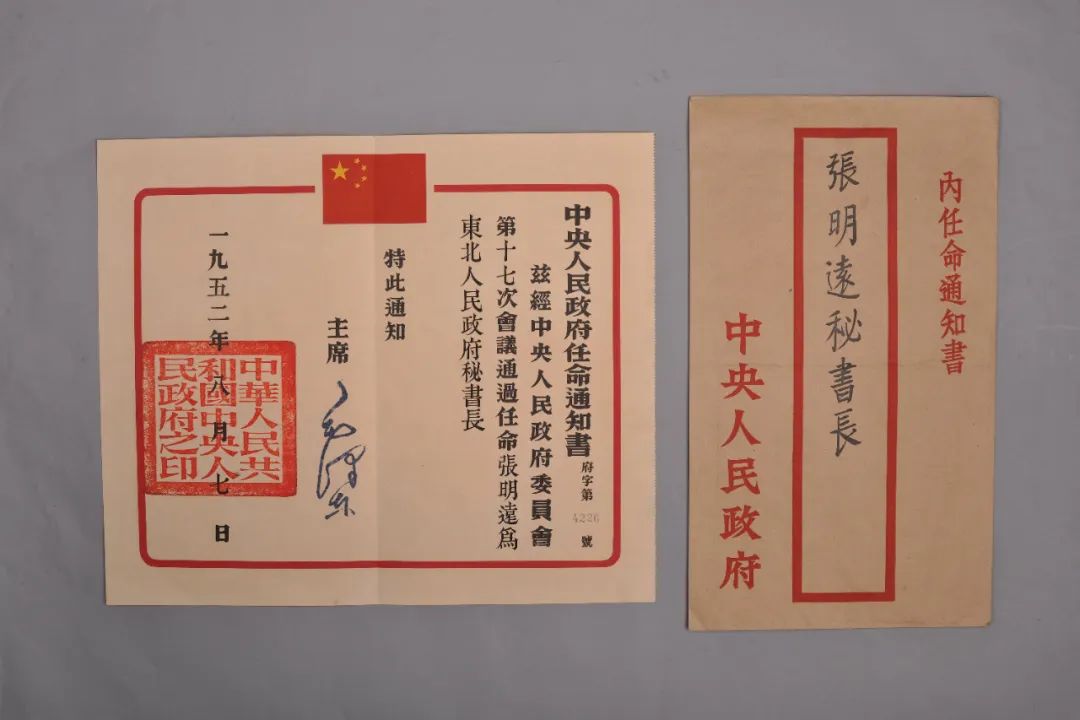 中央人民政府任命通知書
府字第4226號
茲經中央人民政府委員會
第十七次會議通過任命張明遠爲
東北人民政府秘書長
特此通知
主席
毛澤東
一九五二年八月七日
中華人民共
和國中央人
民政府之印
內任命通知書
張明遠秘書長
中央人民政府